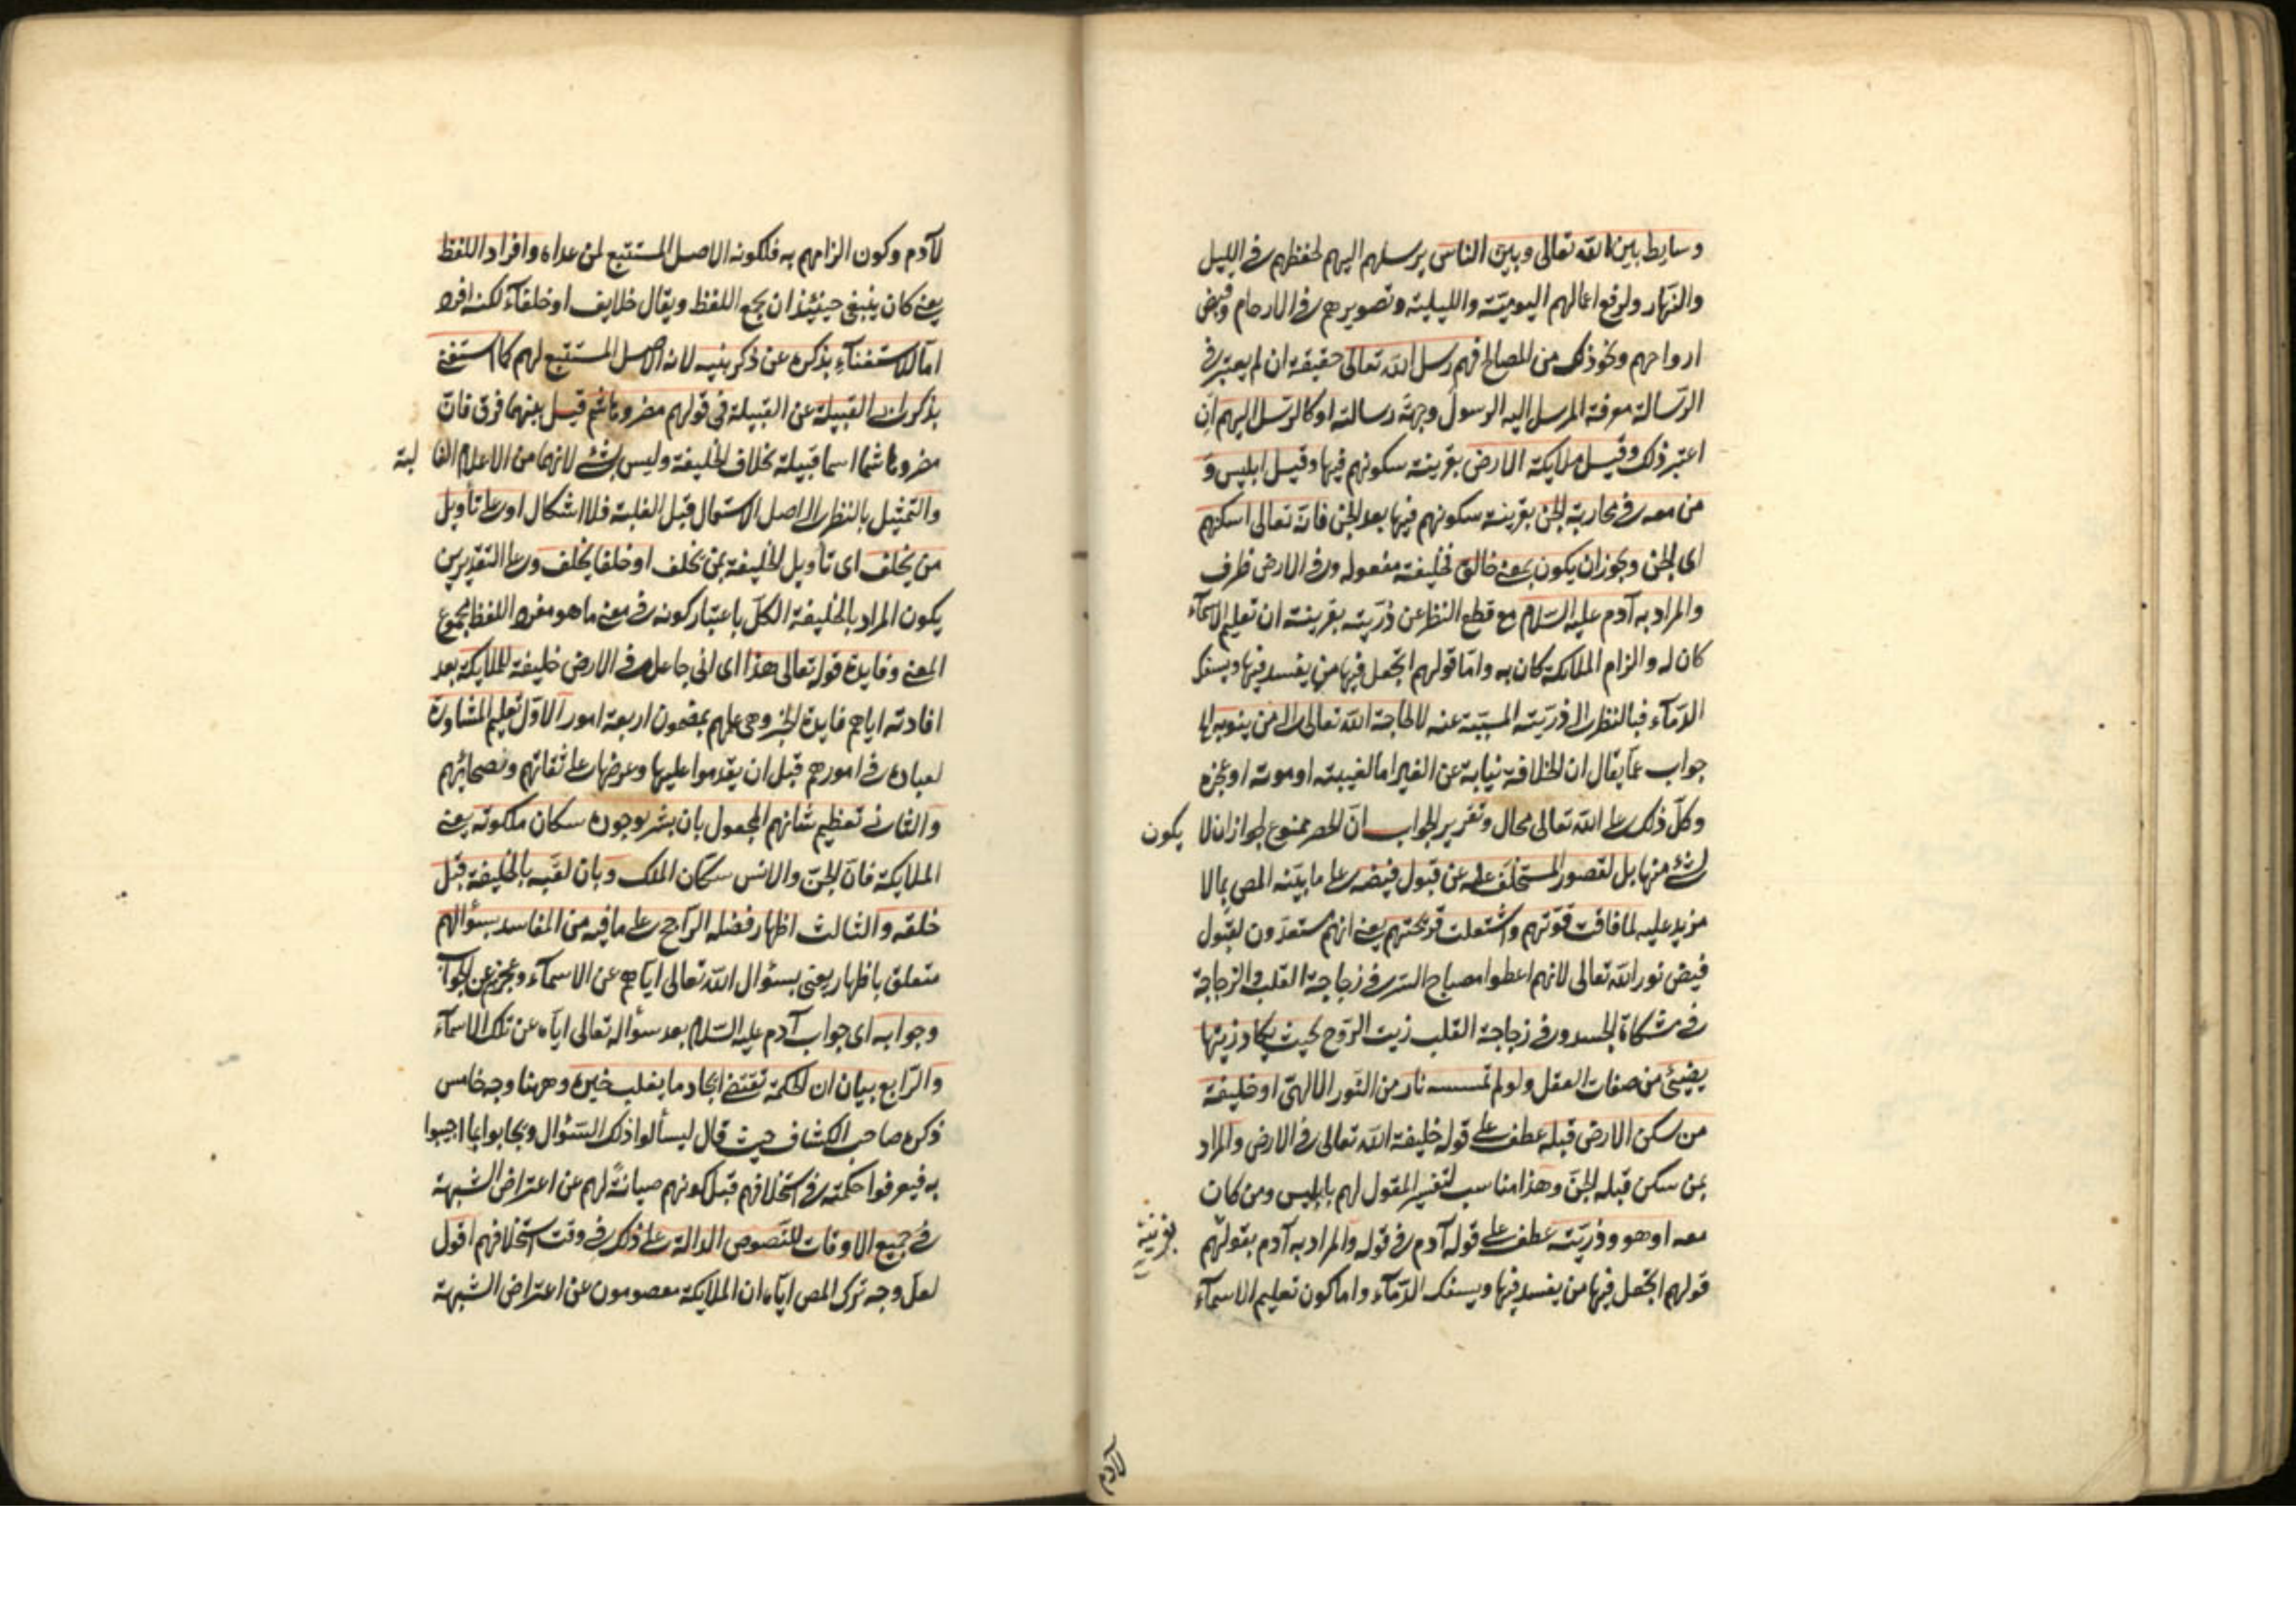 وسايط بين الله تعالى وبين الناس يرسلهم اليهم لحفظهم في الليل
والنهار ولرفع اعمالهم اليومية والليلية وتصويرهم في الارحام وقبض
ارواحهم ونحو ذلك من المصالح فهم رسل الله تعالى حقيقة ان لم يعتبر في
الرسالة معرفة المرسل اليه الرسول وجهة رسالته او كالرسل اليهم ان
اعتبر ذلك وقيل ملايكة الارض بقرينة سكونهم فيها وقيل ابليس و
من معه في محاربة الجن بقرينة سكونهم فيها بعد الجن فانه تعالى اسكنهم
اى الجن ويجوز ان يكون بمعنى خالق فخليفة مفعوله وفي الارض ظرف
والمراد به آدم عليه السلام مع قطع النظر عن ذريته بقرينة ان تعليم الاسمآء
كان له والزام الملايكة كان به واما قولهم اتجعل فيها من يفسد فيها ويسفك
الدمآء فبالنظر الى ذريته المسببة عنه لا لحاجة الله تعالى الى من ينوبه الخ
جواب عما يقال ان الخلافة نيابة عن الغير اما لغيبته او موته او عجزه
وكل ذلك على الله تعالى محال وتقرير الجواب ان الحصر ممنوع لجواز ان لا يكون
لشئ منها بل لقصور المستخلف عليه عن قبول فيضه على ما بينه المص بما لا
مزيد عليه لما فاقت قوتهم واشتعلت قريحتهم يعنى انهم مستعدون لقبول
فيض نور الله تعالى لانهم اعطوا مصباح السر في زجاجة القلب والزجاجة
في مشكاة الجسد وفي زجاجة القلب زيت الروح بحيث يكاد زيتها
يضيئ من صفات العقل ولو لم تمسسه نار من النور الالهى او خليفة
من سكن الارض قبله عطف على قوله خليفة الله تعالى في الارض والمراد
بمن سكن قبله الجن وهذا مناسب لتفسير المقول لهم بابليس ومن كان
معه او هو وذريته عطف على قوله آدم في قوله والمراد به آدم بقولهم
بقرينة
قولهم اتجعل فيها من يفسد فيها ويسفك الدمآء واما كون تعليم الاسمآء
لآدم
لآدم وكون الزامهم به فلكونه الاصل المستتبع لمن عداه وافراد اللفظ
يعنى كان ينبغى حينئذ ان يجمع اللفظ ويقال خلايف او خلفآء لكنه افرد
اما للاستغنآء بذكره عن ذكر بنيه لانه الاصل المستتبع لهم كما استغنى
بذكر اب القبيلة عن القبيلة في قولهم مضر وهاشم قيل بينهما فرق فان
مضر وهاشما اسما قبيلة بخلاف الخليفة وليس بشئ لانهما من الاعلام الغا لبة
والتمثيل بالنظر الى اصل الاستعمال قبل الغلبة فلا اشكال او على تأويل
من يخلف اى تأويل الخليفة بمن يخلف او خلفا يخلف وعلى التقديرين
يكون المراد بالخليفة الكل باعتبار كونه في معنى ما هو مفرد اللفظ مجموع
المعنى وفايدة قوله تعالى هذا اى انى جاعل في الارض خليفة للملايكة بعد
افادته اياهم فايدة الخبر وهى علمهم بمضمون اربعة امور الاول تعليم المشاورة
لعباده في امورهم قبل ان يقدموا عليها وعرضها على ثقاتهم ونصحائهم
والثانى تعظيم شانهم المجعول بان بشر بوجوده سكان ملكوته يعنى
الملايكة فان الجن والانس سكان الملك وبان لقبه بالخليفة قبل
خلقه والثالث اظهار فضله الراجح على ما فيه من المفاسد بسؤالهم
متعلق باظهار يعنى بسئوال الله تعالى اياهم عن الاسمآء وعجزهم عن الجواب
وجوابه اى جواب آدم عليه السلام بعد سؤاله تعالى اياه عن تلك الاسمآء
والرابع بيان ان الحكمة تقتضى ايجاد ما يغلب خيره وههنا وجه خامس
ذكره صاحب الكشاف حيث قال ليسألوا ذلك السئوال ويجابوا بما اجيبوا
به فيعرفوا حكمته في استخلافهم قبل كونهم صيانة لهم عن اعتراض الشبهة
في جميع الاوقات للنصوص الدالة على ذلك في وقت استخلافهم اقول
لعل وجه ترك المص اياه ان الملايكة معصومون عن اعتراض الشبهة